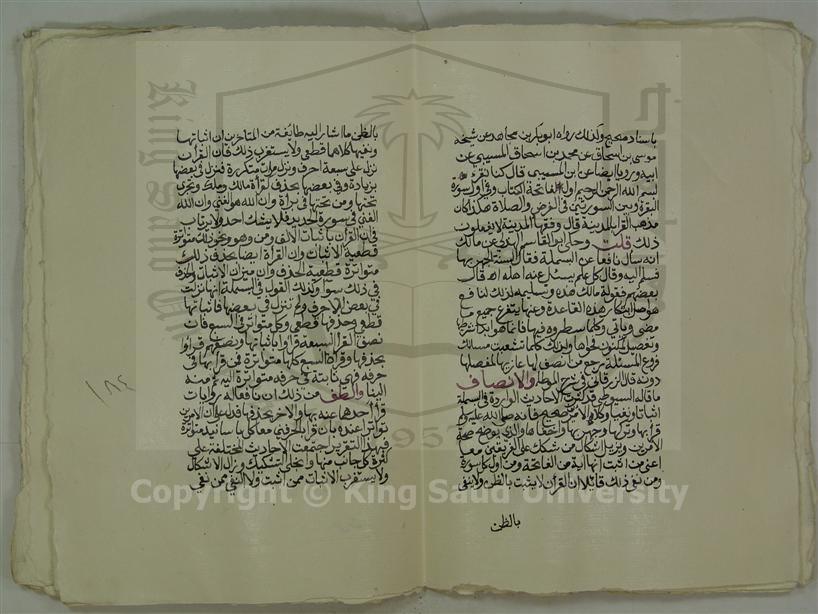 باسناد صحيح وكذلك رواه ابو بكر بن مجاهد عن شيخه
موسى بن اسحاق عن محمد بن اسحاق المسيبي عن
ابيه وروينا ايضا عن ابن المسيبي قال كنا نقرء
بسم الله الرحمن الرحيم اول فاتحة الكتاب وفي اول سورة
البقرة وبين السورتين في العرض والصلاة هكذا كان
مذهب القراء بالمدينة قال وفقهاء المدينة لا يفعلون
ذلك قلت وحكى ابو القاسم الهذلي عن مالك
انه سال نافعا عن البسملة فقال السنة الجهر بها
فسلم اليه وقال كل علم يسئل عنه اهله اه قال
بعضهم فقولة مالك هذه وتسليمه لذلك لنافع
هو اصل ابتكار هذه القاعدة وعنها يتفرع جميع ما
مضى وياتي وكلما سطروه فيها فانما هو ابدا شرح
وتفصيل لمتون فحواها ولذلك كلما تشعبت مسالك
فروع المسئلة رجع من انصف
دونه قال الزرقاني في شرح الموطا والانصاف
ما قاله السيوطي قد كثرت الاحاديث الواردة في البسملة
اثباتا ونفيا وكلا الامرين صحيح فانه صلى الله عليه وسلم
قرأ بها وترك بها وجهر بها واخفاها والذي يوضح صحة
الامرين ويزيل اشكال من شكك على الفريقين معا
اعني من اثبت انها اية من الفاتحة ومن اول كل سورة
ومن نفى ذلك قائلا ان القرآن لا يثبت بالظن ولا ينفى
بالظن
بالظن ما اشار اليه طائفة من المتاخرين ان اثباتها
ونفيها كلاهما قطعي ولا يستغرب ذلك فان القرآن
نزل على سبعة احرف ونزل مرات متكررة فنزل في بعضها
بزيادة وفي بعضها بحذف كقرأة مالك وملك وتجري
تحتها ومن تحتها في براءة وان الله هو الغني وان الله
الغني في سورة الحديد فلا يشك احد ولا يرتاب
في ان القرأن باثبات الالف ومن وهو ونحو ذلك متواترة
قطعية الاثبات وان القرأة ايضا بحذف ذلك
متواترة قطعية الحذف وان ميزان الاثبات والحذف
في ذلك سوا وكذلك القول في البسملة انها نزلت
في بعض الاحرف ولم تنزل في بعضها فاثباتها
قطعي وحذفها قطعي وكل متواتر وفي السبع فان
نصف القراء السبعة قرأوا باثباتها ونصفهم قرأوا
بحذفها وقراءة السبع كلها متواترة فمن قرأ بها فهي
ثابتة في حرفه متواترة اليه ثم منه
الينا والطف من ذلك ان نافعا له روايات
قرأ احدهما عنه بها والاخر بحذفها فدل على ان الامرين
تواترا عنده بان قرأ بالحرفين معا كل باسانيد متواترة
فبهذا التقرير اجتمعت الاحاديث المختلفة على
كثرة كل جانب منها وانجلى التشكيك وزال الاشكال
ولا يستغرب الاثبات ممن اثبت ولا النفي ممن نفى
١٨٤
Copyright © King Saud University
King Saud
1957